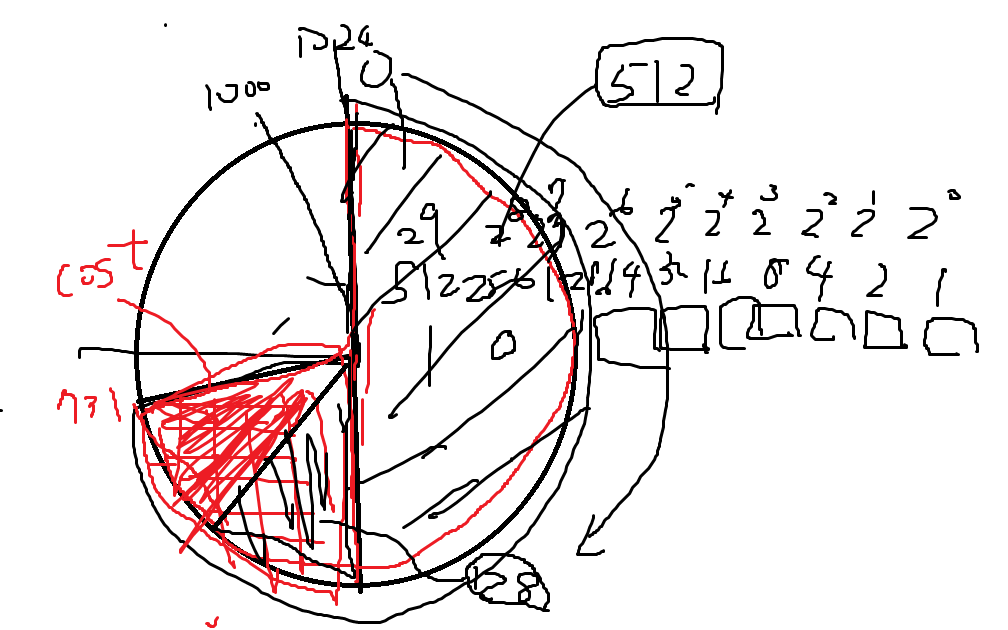 1024
0
1000
512
2^9 2^8 2^7 2^6 2^5 2^4 2^3 2^2 2^1 2^0
512 256 128 64 32 16 8 4 2 1
1 0
cost
731
128